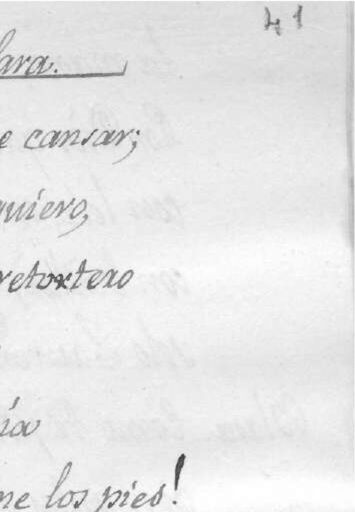 41
lara.
e cansar;
quiero,
retortero
ía
me los pies!